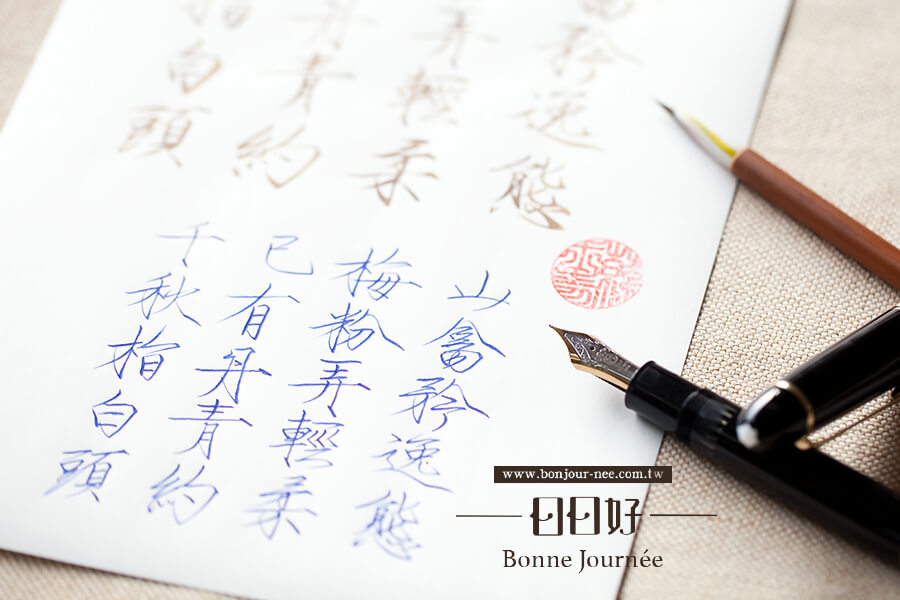 禽矜逸態
弄輕柔
丹青約
指白頭
山禽矜逸態
梅粉弄輕柔
已有丹青約
千秋指白頭
www.bonjour-nee.com.tw
日日好
Bonne Journée